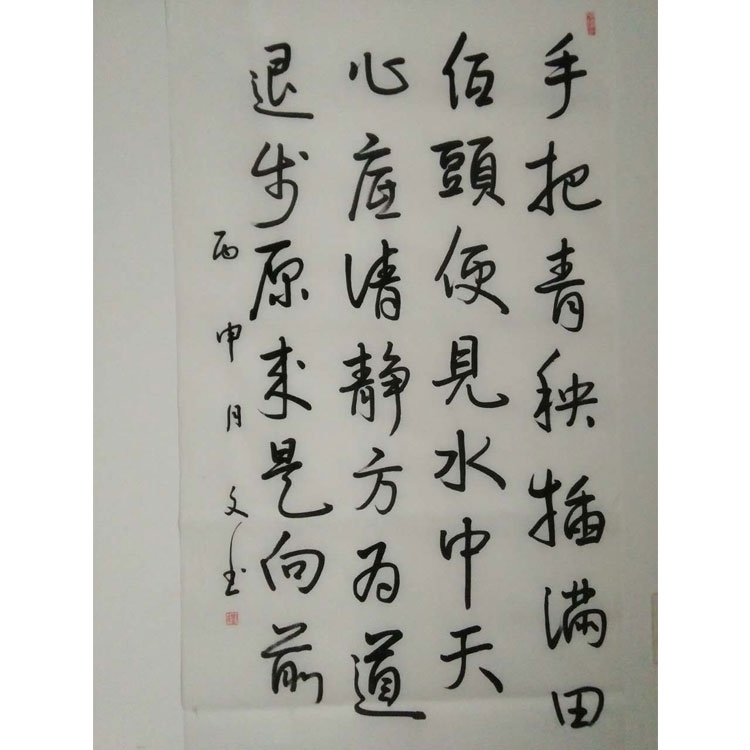 手把青秧插满田
低頭便見水中天
心底清静方为道
退步原来是向前
丙申月 文